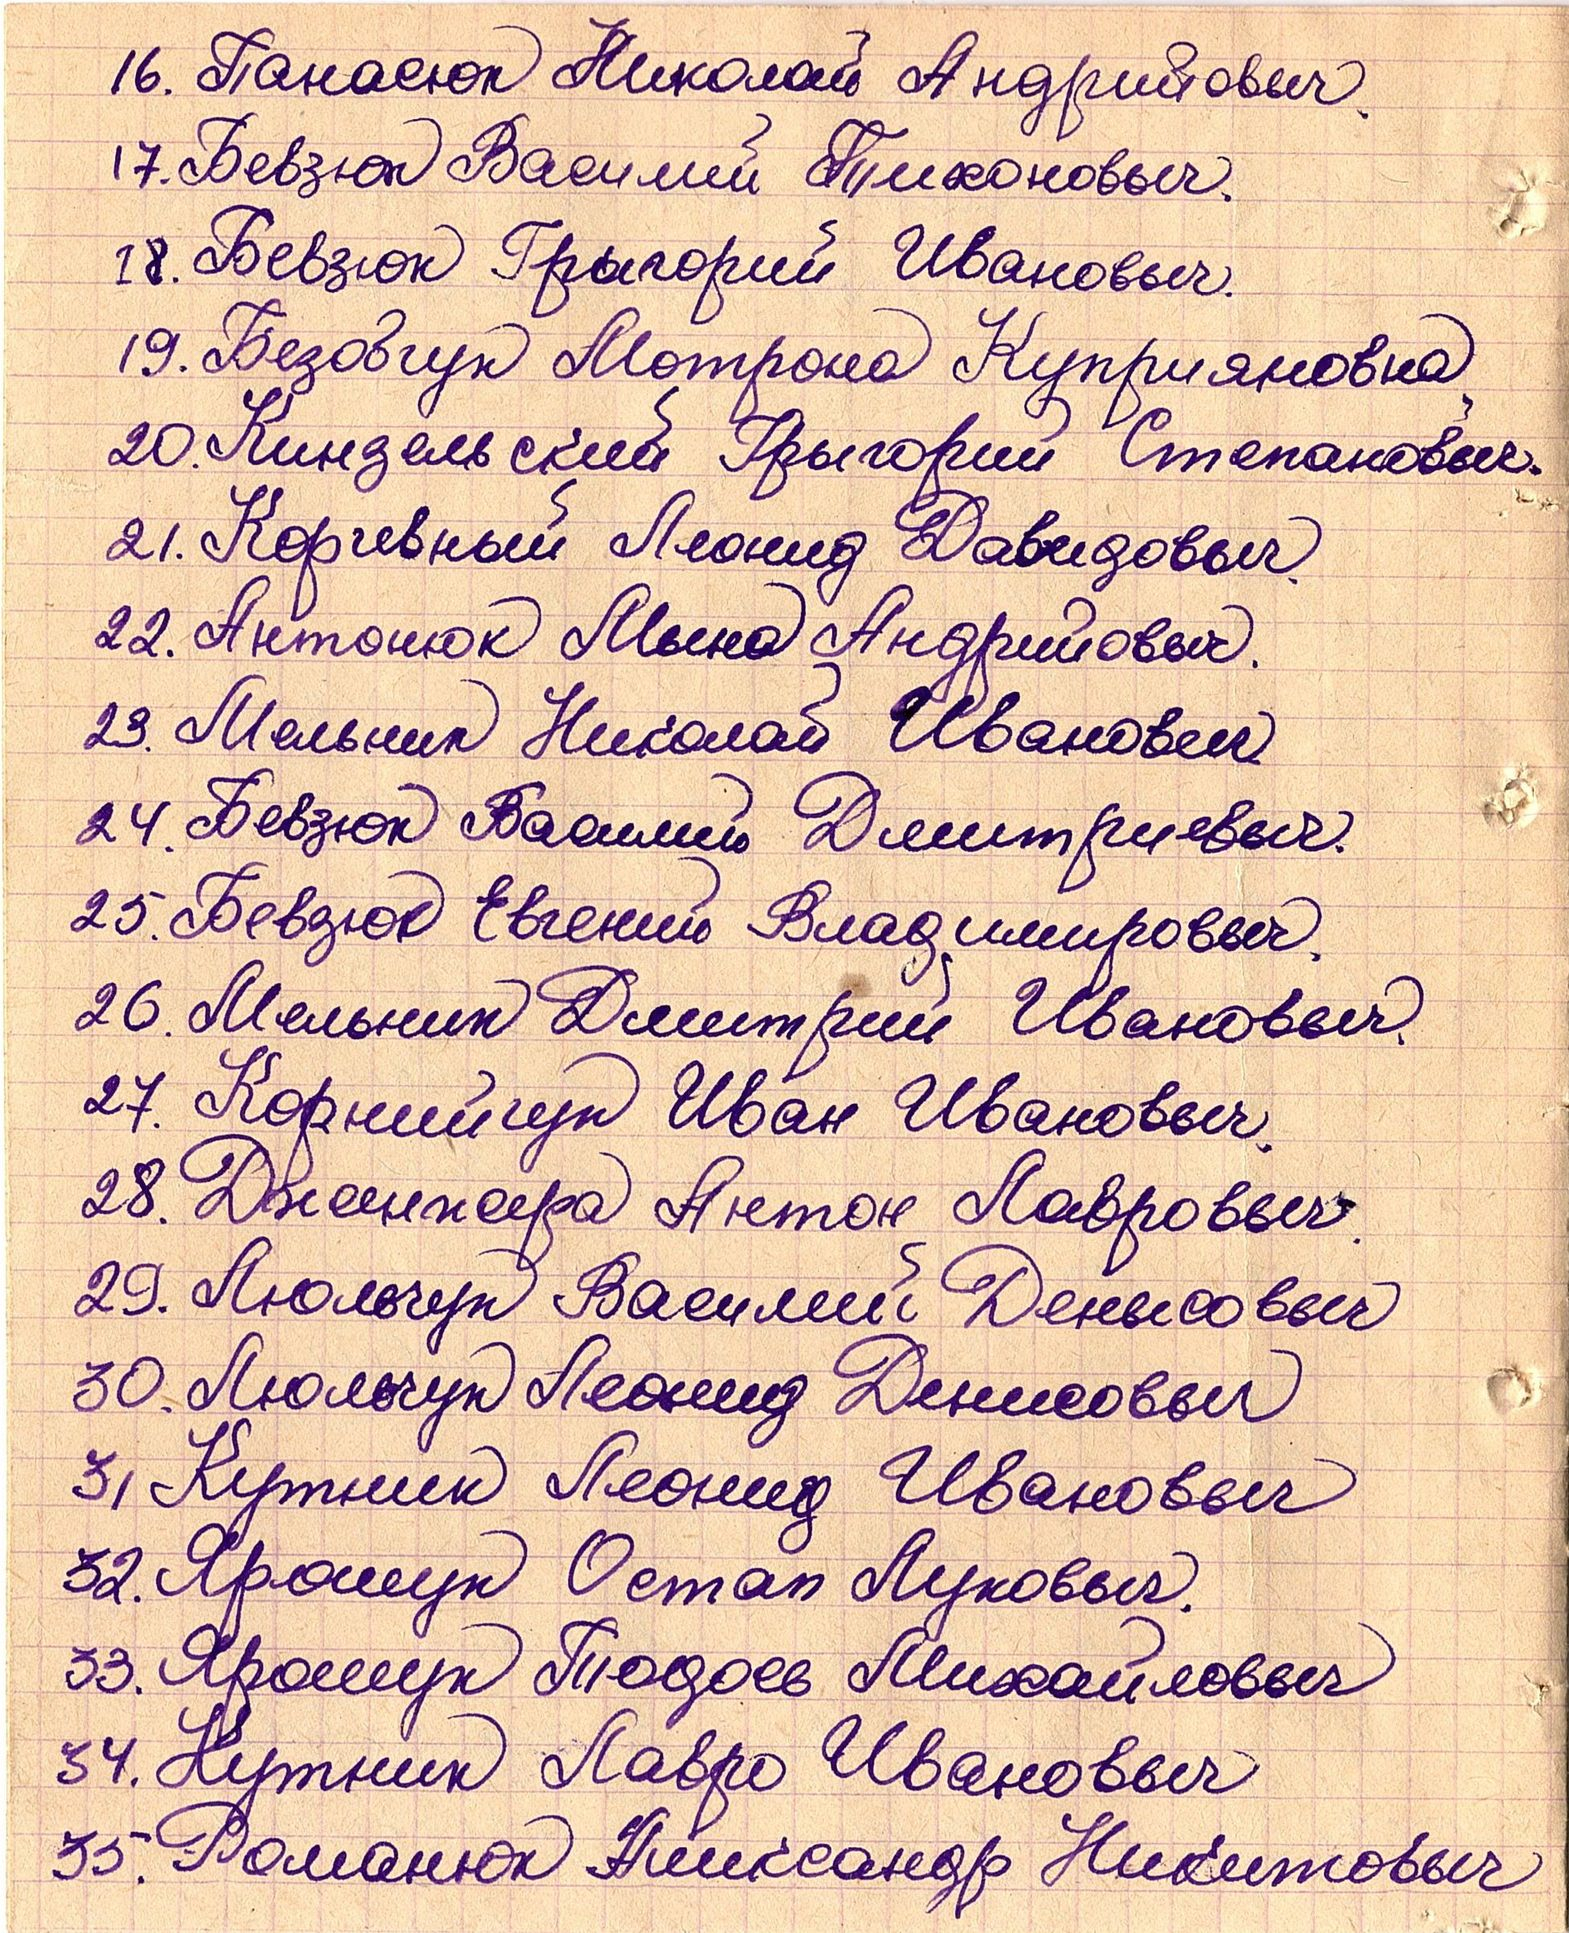 16. Панасюк Николай Андрийовыч.
17. Бевзюк Василий Тихоновыч.
18. Бевзюк Грыгорий Ивановыч.
19. Безовчук Мотрона Куприяновна.
20. Киндзельский Грыгорий Степановыч.
21. Корчевный Леонид Давидовыч.
22. Антонюк Мына Андрийовыч.
23. Мельник Николай Ивановыч.
24. Бевзюк Василий Дмитриевыч.
25. Бевзюк Евгений Владимировыч.
26. Мельник Дмитрий Ивановыч.
27. Корнийчук Иван Ивановыч.
28. Антон Лавровыч.
29. Люльчук Василий Денысовыч
30. Люльчук Леонид Денисовыч
31 Кутник Леонид Ивановыч
32. Ярощук Остап Луковыч.
33. Ярощук Тодось Михайловыч
34. Кутник Лавро Ивановыч
35. Романюк Александр Никитовыч